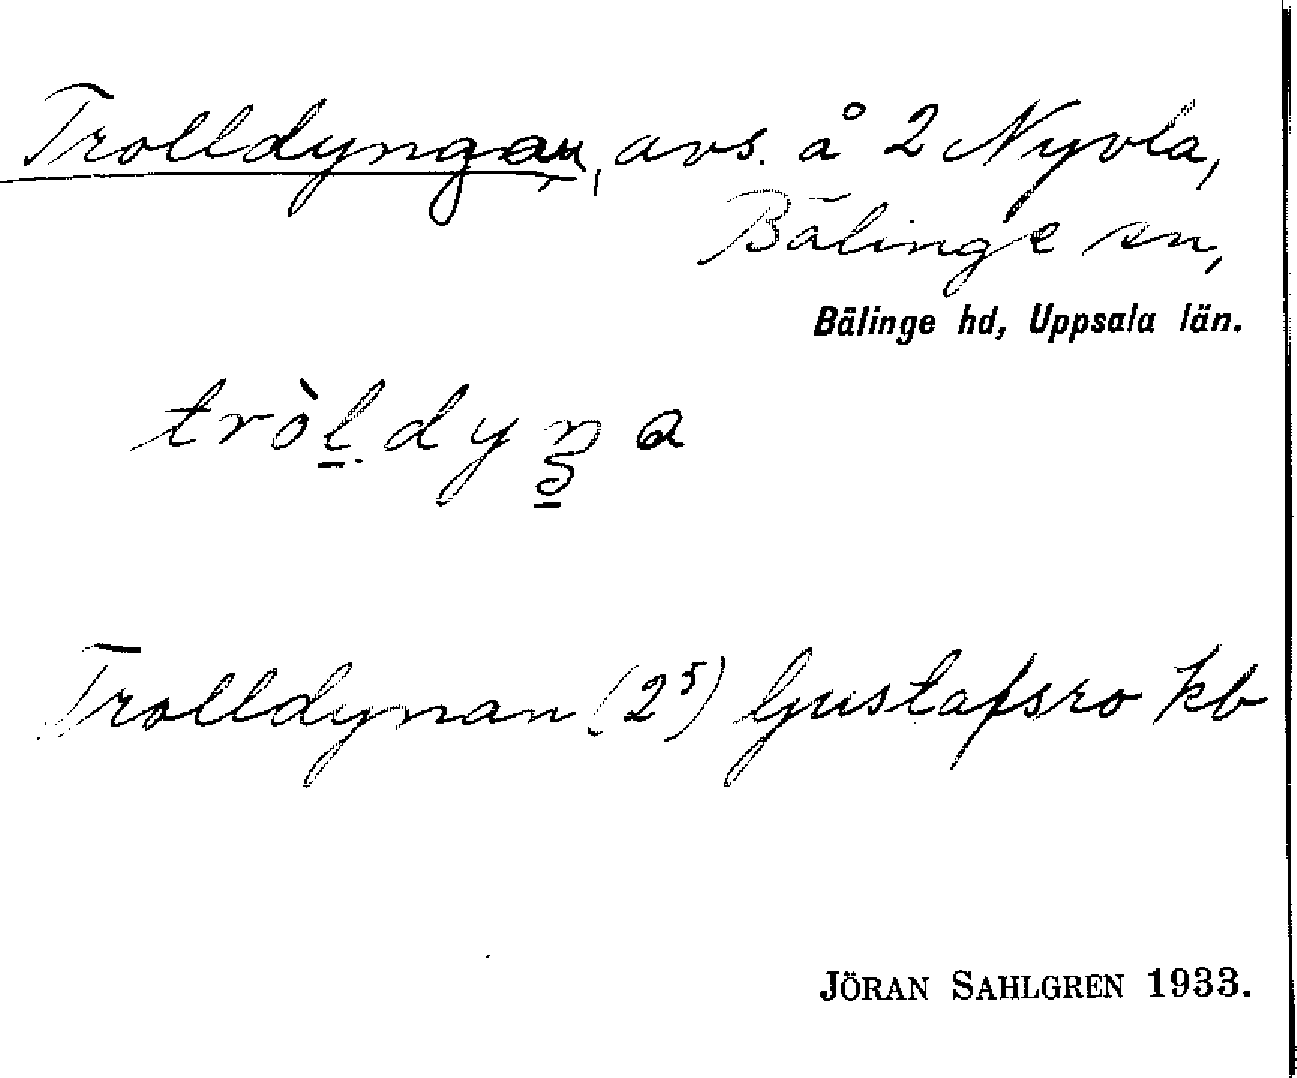 Trolldyngan, avs. å 2 Nyvla,
Bälinge sn,
Bälinge hd, Uppsala län.
tròl̠dyŋ̠a
Trolldynan (2⁵) Gustafsro kb
JÖRAN SAHLGREN 1933.